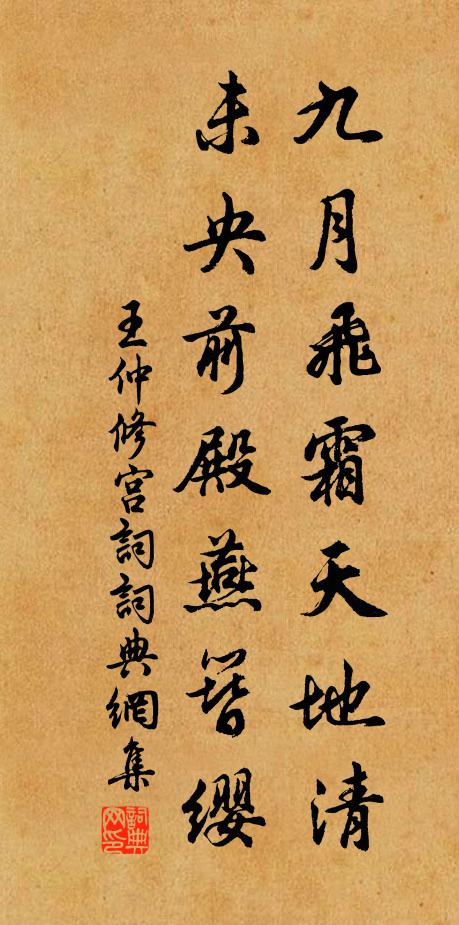 九月飛霜天地清
未央前殿燕簪纓
王仲修宮詞詞典網集
詞典网印